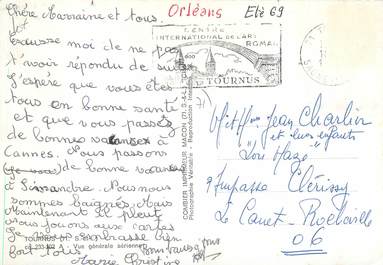 Orléans
Eté 69
Chère Marraine et tous
Excuse moi de ne pas
t'avoir répondu de suite
J'espère que vous êtes
tous en bonne santé
et que vous passez
de bonnes vacances à
Cannes. Nous passons
de bonne vacances
à Simandre. Nous nous
sommes baignés. Mais
Maintenant il pleut
nous jouons aux cartes
Je vous embrasse bien
fort tous.
Marie Christine
CENTRE
INTERNATIONAL DE L'ART
ROMAN
TOURNUS
71
COMBIER IMPRIMEUR MACON (71, S.-&-L.)
Photographie Véritable - Reproduction Interdite
TOURNUS
Vue générale aérienne
Mr Mme Jean Charlier
et leurs enfants
"Lou Haze"
9 Impasse Clérissy
Le Canet-Rocheville
06